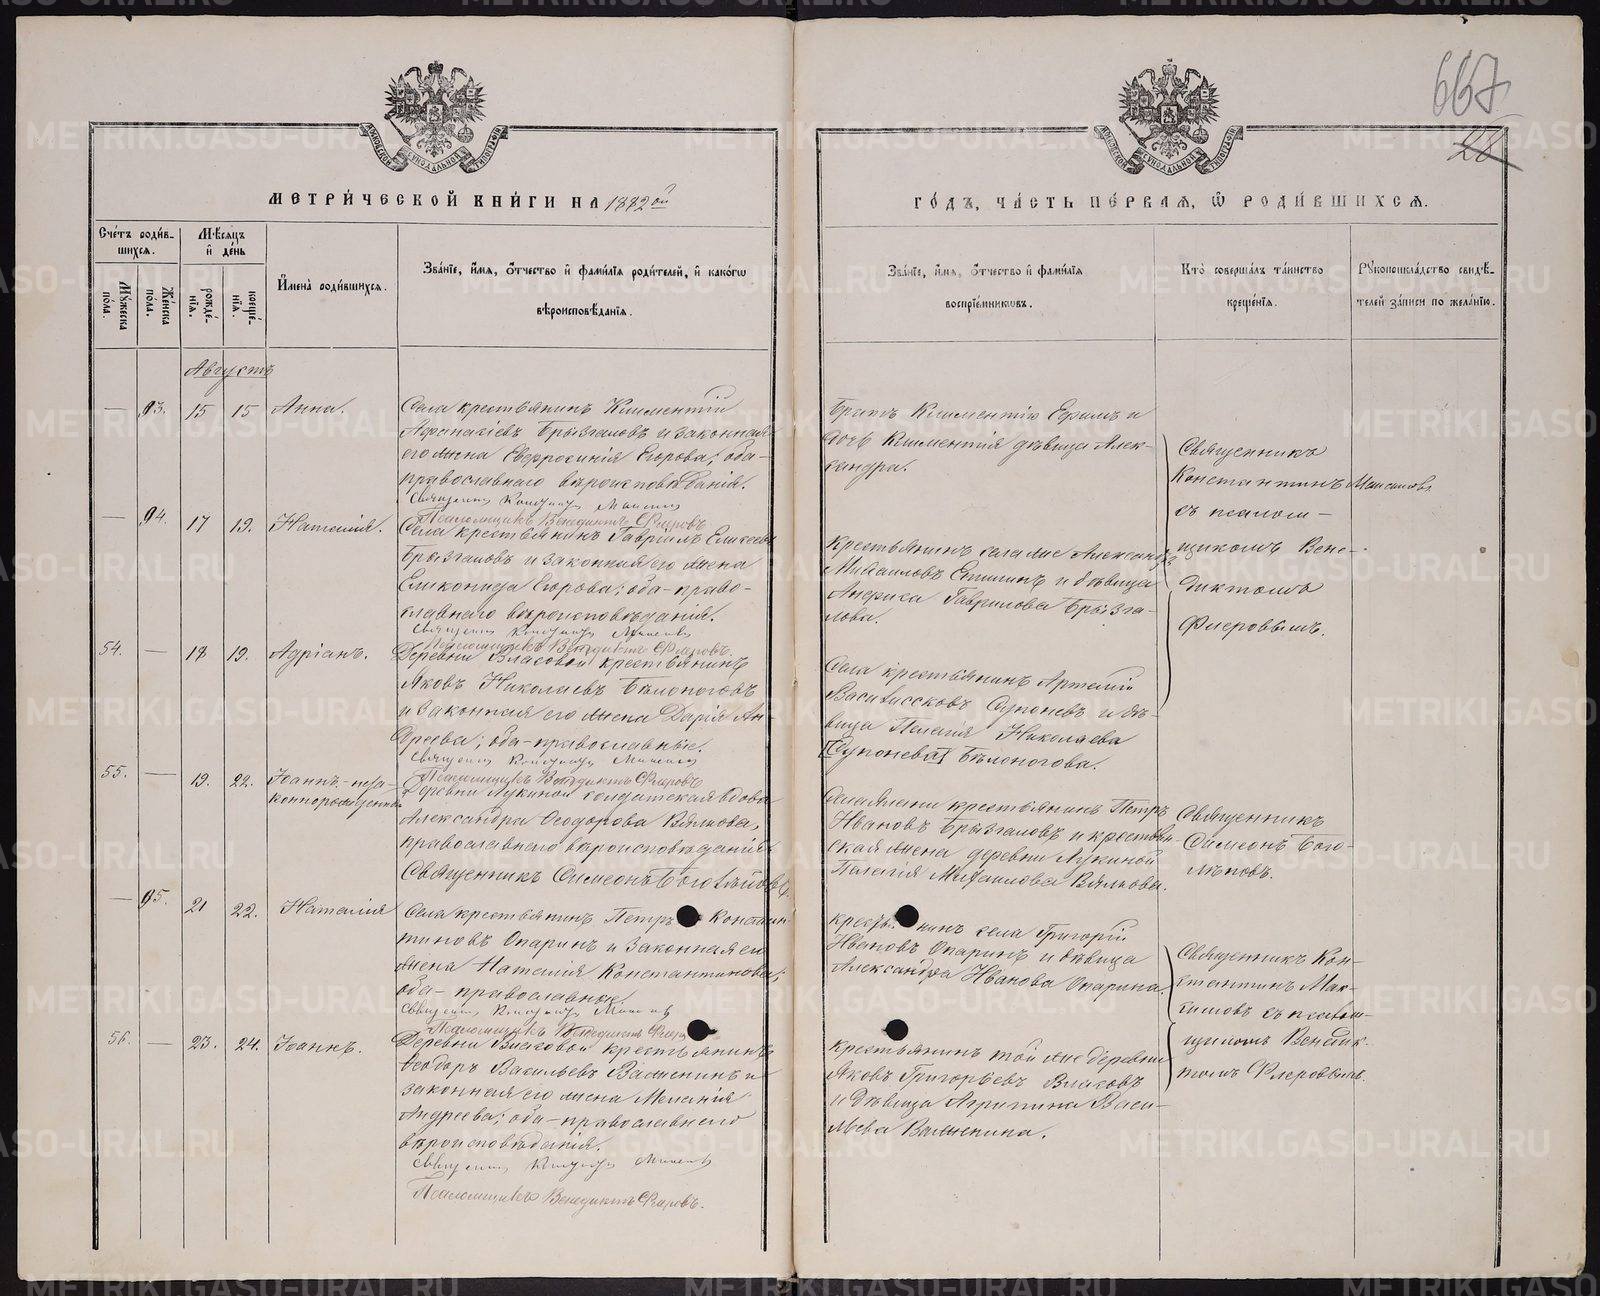 667
28
МЕТРИЧЕСКОЙ КНИГИ НА 1882ой
ГОДЪ, ЧАСТЬ ПЕРВАЯ, Ѿ РОДИВШИХСЯ.
Счетъ родив-
шихся.
Мѣсяцъ
и день
Мужеска
пола.
Женска
пола.
рожде-
нія.
креще-
нія.
Имена родившихся.
Званіе, имя, отчество и фамилія родителей, и какогѡ
вѣроисповѣданія.
Званіе, имя, отчество и фамилія
воспріемниковъ.
Кто совершалъ таинство
крещенія.
Рукоприкладство свидѣ-
телей записи по желанію.
Августъ
— 93. 15 15 Анна.
Села крестьянинъ Климентій
Афанасіевъ Брызгаловъ и законная
его жена Евфросинія Егорова; оба-
православнаго вѣроисповѣданія.
Псаломщикъ Венедиктъ Флеровъ
Братъ Климентія Ефимъ и
дочь Климентія дѣвица Алек-
сандра.
Священникъ
Константинъ Максимовъ
съ псалом-
щикомъ Вене-
диктомъ
Флеровымъ.
— 94. 17 19. Наталія.
Села крестьянинъ Гавріилъ Елисеевъ
Брызгаловъ и законная его жена
Еликонида Егорова; оба-право-
славнаго вѣроисповѣданія.
Псаломщикъ Венедиктъ Флеровъ.
Крестьянинъ села же Александръ
Михаиловъ Епишинъ и дѣвица
Анфиса Гаврилова Брызга-
лова.
54. — 18 19. Адріанъ.
Деревни Власовой крестьянинъ
Яковъ Николаевъ Бѣлоноговъ
и законная его жена Дарія Ан-
дреева; оба-православные.
Псаломщикъ Венедиктъ Флеровъ
Села крестьянинъ Артемій
Супоневъ и дѣ-
вица Пелагія Николаева
[Супонева] Бѣлоногова.
55. — 19. 22. Іоаннъ-неза-
коннорожденный
Деревни Лукиной солдатская вдова
Александра Ѳеодорова Вялкова,
православнаго вѣроисповѣданія.
Священникъ Симеонъ Боголѣповъ
крестьянинъ Петръ
Ивановъ Брызгаловъ и крестьян-
ская жена деревни Лукиной
Пелагія Михаилова Вялкова.
Священникъ
Симеонъ Бого-
лѣповъ.
— 95. 21 22. Наталія
Села крестьянинъ Петръ Констан-
тиновъ Опаринъ и законная его
жена Наталія Константинова;
оба- православные.
Псаломщикъ Венедиктъ
крестьянинъ села Григорій
Ивановъ Опаринъ и дѣвица
Александра Иванова Опарина.
Священникъ Кон-
стантинъ Мак-
симовъ съ псалом-
щикомъ Венедик-
томъ Флеровымъ.
56. — 23. 24. Іоаннъ.
Деревни Власовой крестьянинъ
Ѳеодоръ Васильевъ Валькинъ и
законная его жена Меланія
Андреева; оба-православнаго
вѣроисповѣданія.
Псаломщикъ Венедиктъ Флеровъ.
крестьянинъ той же деревни
Яковъ Григорьевъ Власовъ
и дѣвица Агрипина Васи-
льева Валькина.